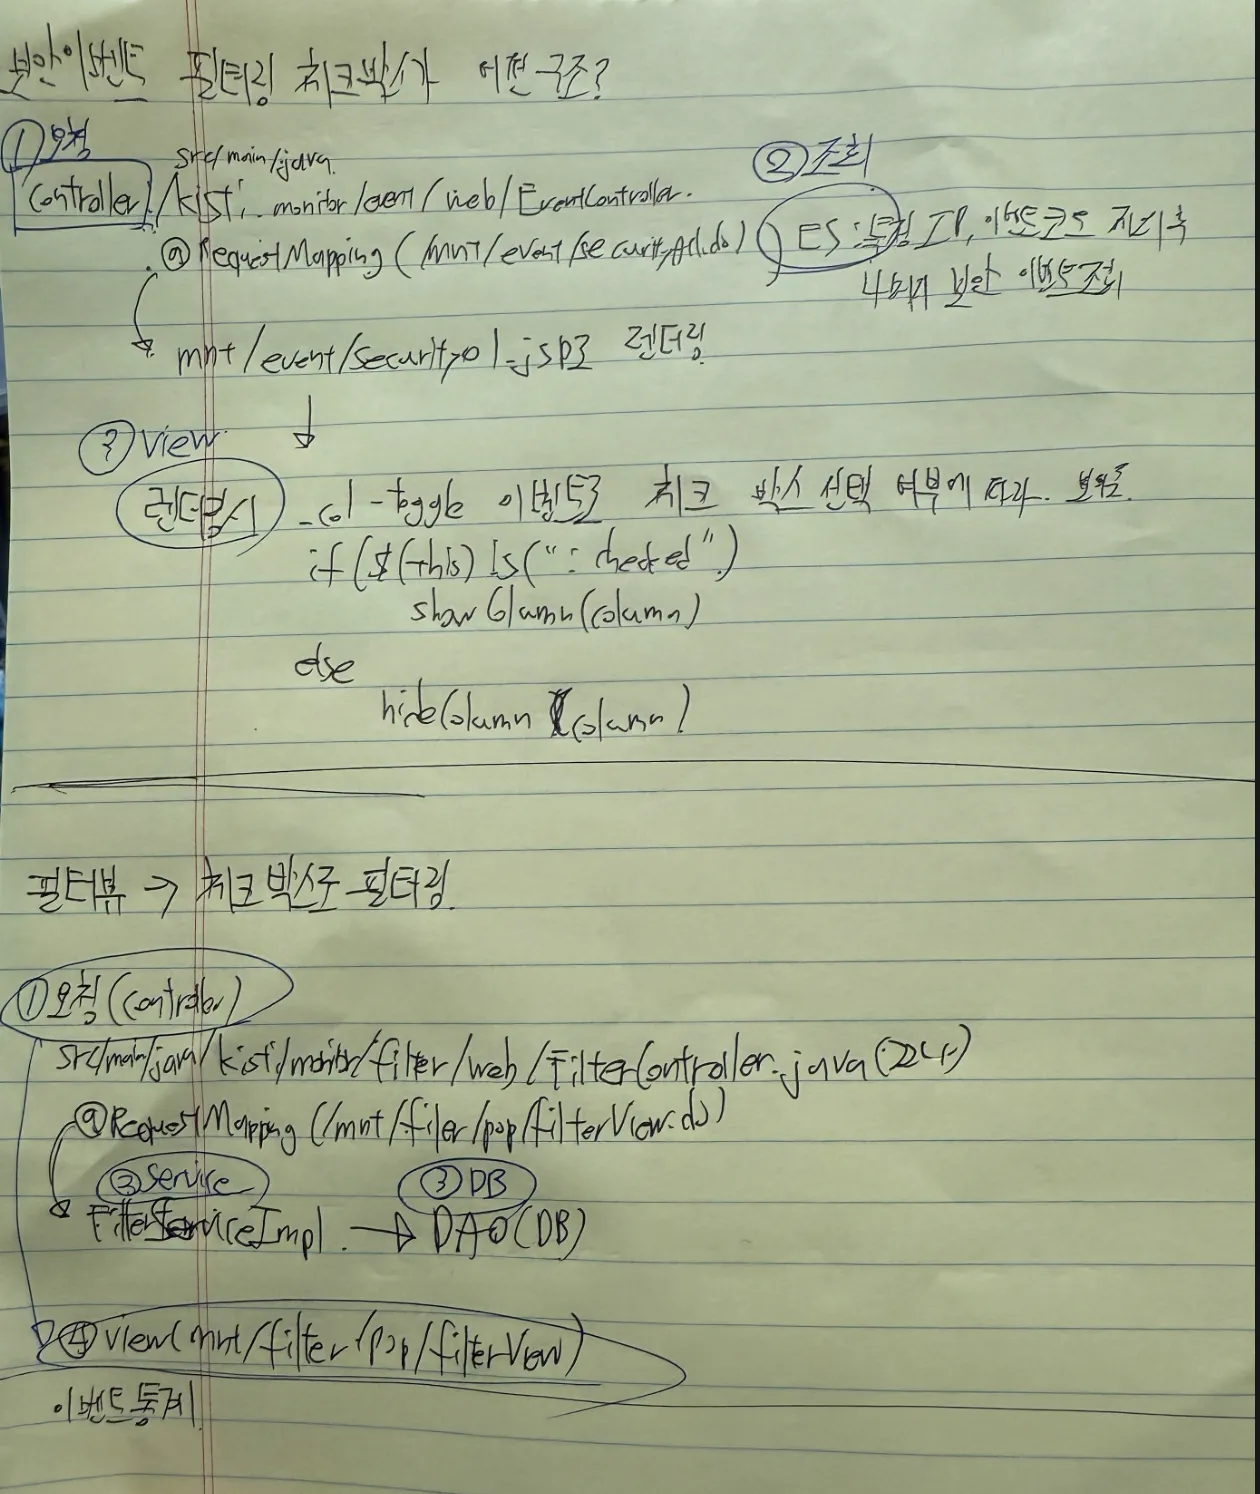 보안이벤트 필터링 체크박스가 어떤구조?
① 요청
src/main/java
② 조회
Controller /kisti monitor/event/web/EventController.
@RequestMapping(/mnt/event/security.do)
ES : 특정 IP, 이벤트코드
보안 이벤트
mnt/event/security01.jsp로 렌더링
↓
③ View
렌더링시 col-toggle 이벤트로 체크 박스 선택 여부에 따라.
if($(this) is(":checked")
showColumn(column)
else
hideColumn(column)
필터뷰 → 체크박스로 필터링
① 요청(controller)
src/main/java/kisti/monitor/filter/web/FilterController.java
@RequestMapping(/mnt/filer/pop/filterView.do)
② Service ③ DB
FilterServiceImpl → DAO(DB)
④ view(mnt/filter/pop/filterView)
이벤트통계